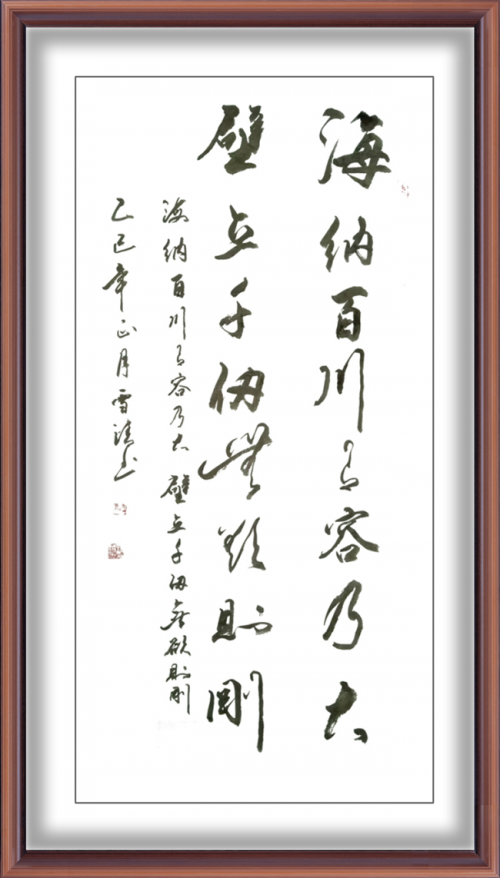 海纳百川有容乃大
壁立千仞無欲則剛
海纳百川有容乃大 壁立千仞無欲則剛
乙巳年正月雪清書